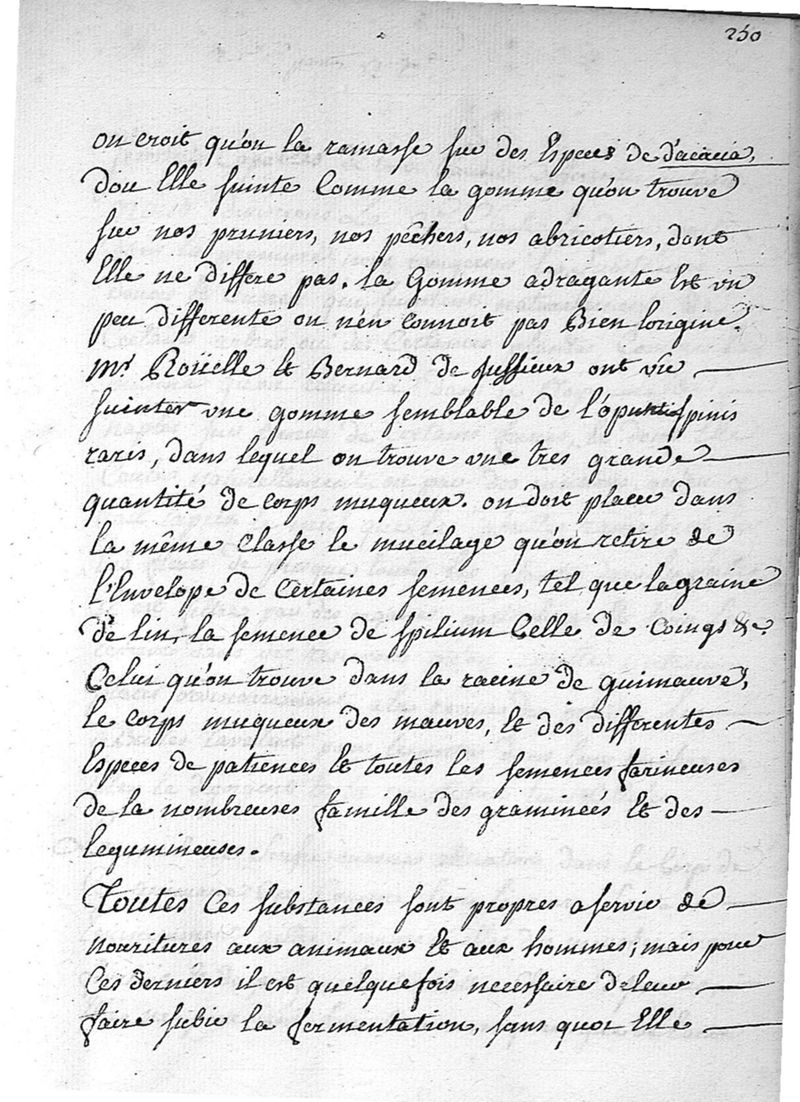 250
on croit qu'on la ramasse sur des Especes de d'acacia,
dou Elle suinte Comme la gomme qu'on trouve
sur nos pruniers, nos pêchers, nos abricotiers, dont
Elle ne differe pas. la Gomme adragante Est un
peu differente on n'en connoit pas Bien lorigine.
Mrs Roüelle et Bernard de Jussieux ont vû
suinter une gomme semblable de l'opunti spinis
raris, dans lequel on trouve une tres grande
quantité de Corps muqueux. on doit placer dans
la même Classe le mucilage qu'on retire de
l'Envelope de Certaines semences, tel que la graine
de lin, la semence de spilium Celle de Coings &c.
Celui qu'on trouve dans la racine de guimauve,
le Corps muqueux des mauves, Et des differentes
Especes de patiences Et toutes les semences farineuses
de la nombreuses famille des graminées Et des
legumineuses.
Toutes Ces substances sont propres a servir de
nourritures aux animaux Et aux hommes; mais pour
Ces derniers il est quelque fois necessaire de leur
faire subir la fermentation, sans quoi Elle